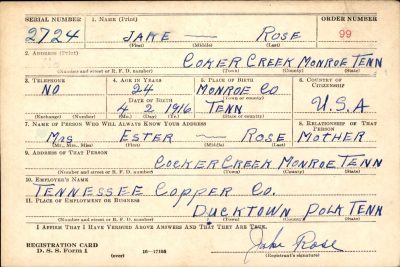 SERIAL NUMBER 1. NAME (Print) ORDER NUMBER
2724 JAKE — ROSE 99
(First) (Middle) (Last)
2. ADDRESS (Print)
COKER CREEK MONROE TENN
(Number and street or R. F. D. number) (Town) (County) (State)
3. TELEPHONE 4. AGE IN YEARS 5. PLACE OF BIRTH 6. COUNTRY OF CITIZENSHIP
NO 24 MONROE CO
DATE OF BIRTH (Town or county)
4 2 1916 TENN U.S.A
(Exchange) (Number) (Mo.) (Day) (Yr.) (State or country)
7. NAME OF PERSON WHO WILL ALWAYS KNOW YOUR ADDRESS 8. RELATIONSHIP OF THAT PERSON
MRS ESTER — ROSE MOTHER
(Mr., Mrs., Miss) (First) (Middle) (Last)
9. ADDRESS OF THAT PERSON
COCKER CREEK MONROE TENN
(Number and street or R. F. D. number) (Town) (County) (State)
10. EMPLOYER'S NAME
TENNESSEE COPPER CO.
11. PLACE OF EMPLOYMENT OR BUSINESS
DUCKTOWN POLK TENN
(Number and street or R. F. D. number) (Town) (County) (State)
I AFFIRM THAT I HAVE VERIFIED ABOVE ANSWERS AND THAT THEY ARE TRUE.
REGISTRATION CARD Jake Rose
D. S. S. Form 1 (over) 16—17105 (Registrant's signature)